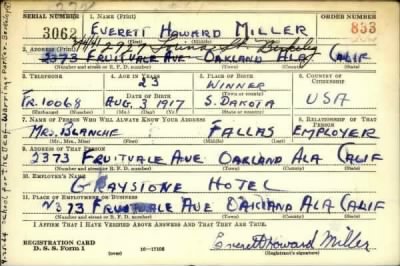 SERIAL NUMBER 1. NAME (Print) ORDER NUMBER
3062 EVERETT HOWARD MILLER 833
(First) (Middle) (Last)
2. ADDRESS (Print)
2373 FRUITVALE AVE OAKLAND ALA CALIF
(Number and street or R. F. D. number) (Town) (County) (State)
3. TELEPHONE 4. AGE IN YEARS 5. PLACE OF BIRTH 6. COUNTRY OF CITIZENSHIP
23 WINNER
DATE OF BIRTH
FR. 10068 AUG. 3 1917 S. DAKOTA USA
(Exchange) (Number) (Mo.) (Day) (Yr.) (State or country)
7. NAME OF PERSON WHO WILL ALWAYS KNOW YOUR ADDRESS 8. RELATIONSHIP OF THAT PERSON
MRS. BLANCHE FALLAS EMPLOYER
(Mr., Mrs., Miss) (First) (Middle) (Last)
9. ADDRESS OF THAT PERSON
2373 FRUITVALE AVE OAKLAND ALA CALIF
(Number and street or R. F. D. number) (Town) (County) (State)
10. EMPLOYER'S NAME
GRAYSTONE HOTEL
11. PLACE OF EMPLOYMENT OR BUSINESS
2373 FRUITVALE AVE OAKLAND ALA CALIF
(Number and street or R. F. D. number) (Town) (County) (State)
I AFFIRM THAT I HAVE VERIFIED ABOVE ANSWERS AND THAT THEY ARE TRUE.
REGISTRATION CARD
D. S. S. Form 1 (over) 16-17105 Everett Howard Miller